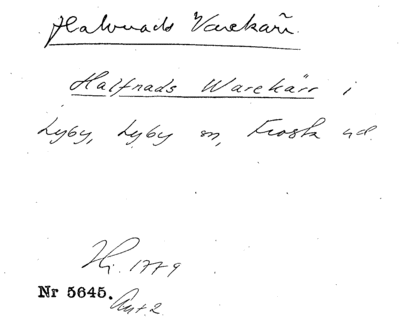 Halvnads Varekärr.
Halfnads Warekärr i
Lyby, Lyby sn, Frosta hd.
Hj. 1779
Nr 5645.
Akt 2